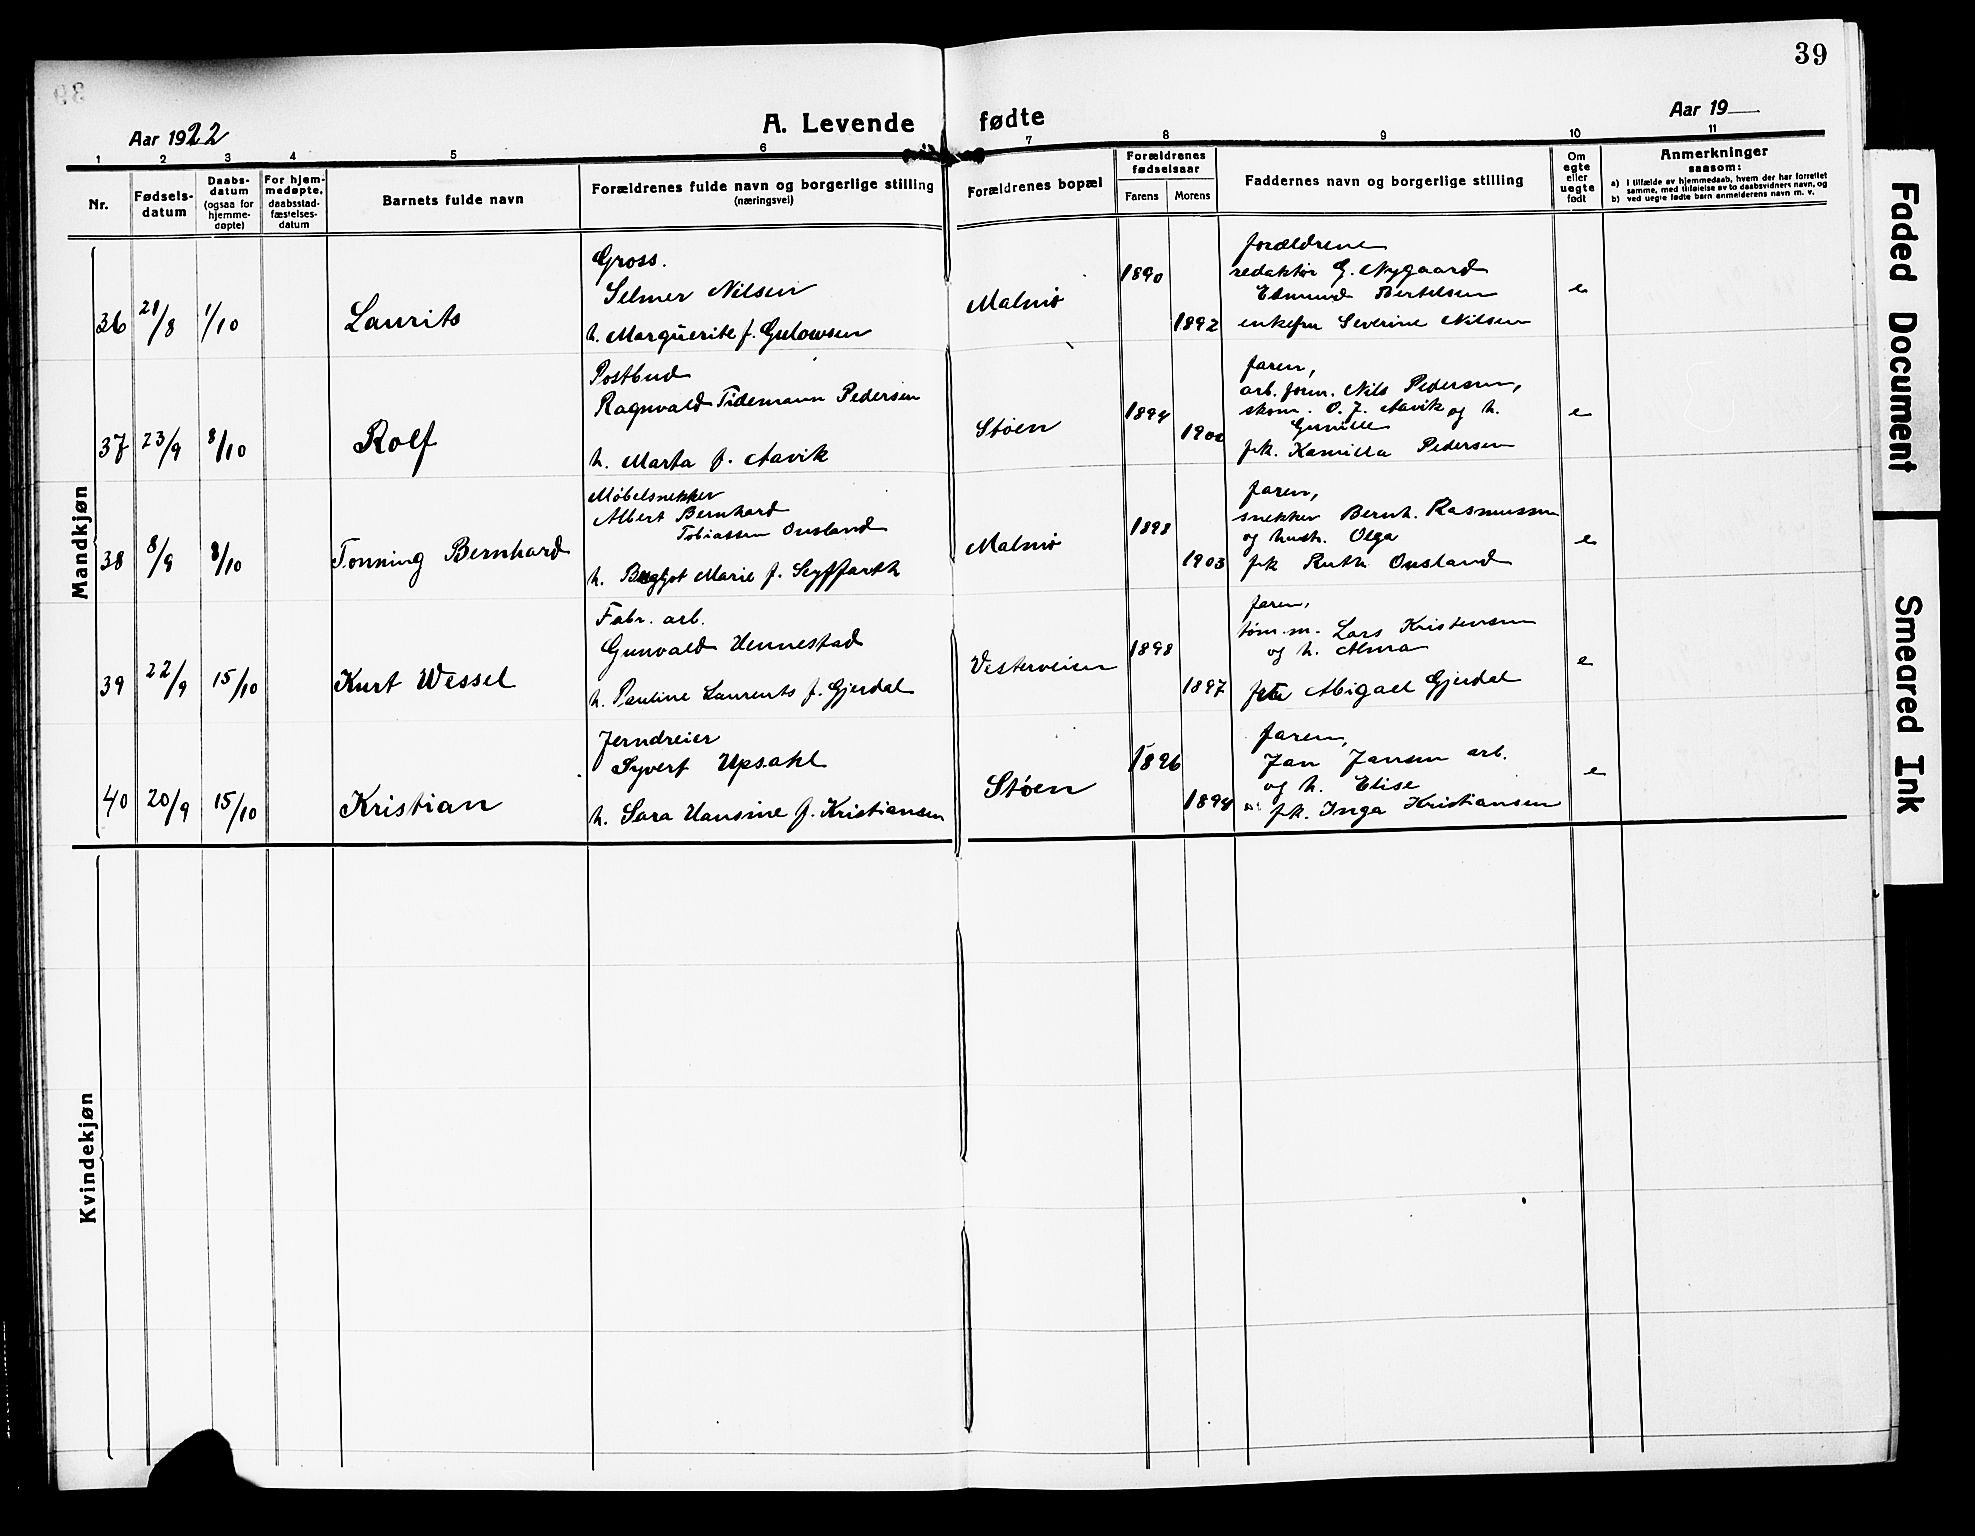 39
Aar 1922
A. Levende fødte
Aar 19
1 2 3 4 5 6 7 8 9 10 11
Nr.
Fødsels-
datum
Daabs-
datum
(ogsaa for
hjemme-
døpte)
For hjem-
medøpte,
daabsstad-
fæstelses-
datum
Barnets fulde navn
Forældrenes fulde navn og borgerlige stilling
(næringsvei)
Forældrenes bopæl
Forældrenes
fødselsaar
Farens Morens
Faddernes navn og borgerlige stilling
Om
egte
eller
uegte
født
Anmerkninger
saasom:
a) i tilfælde av hjemmedaab, hvem der har forrettet
samme, med tilføielse av to daabsvidners navn, og
b) ved uegte fødte barn anmelderens navn m. v.
Mandkjøn
36 21/8 1/10 Laurits
Gross.
Selmer Nilsen
h. Marguerite f. Gulowsen
Malmø
1890
1892
forældrene
redaktør G. Nygaard
Edmund Bertelsen
enkefru Severine Nilsen
e
37 23/9 8/10 Rolf
Postbud
Ragnvald Tidemann Pedersen
h. Marta f. Aavik
Støen
1894
1900
faren,
arb. form. Nils Pedersen,
skom. O. J. Aavik og h.
Gunille
frk. Kamilla Pedersen
e
38 8/9 8/10 Tonning Bernhard
Møbelsnekker
Albert Bernhard
Tobiassen Onsland
h. Bergljot Marie f. Seyffarth
Malmø
1898
1903
faren,
snekker Bernh. Rasmussen
og hustr. Olga
frk Ruth Onsland
e
39 22/9 15/10 Kurt Wessel
Fabr. arb.
Gunvald Vennestad
h. Pauline Laurents f. Gjerdal
Vesterveien
1898
1897
faren,
tøm.m. Lars Kristensen
og h. Alma
Abigael Gjerdal
e
40 20/9 15/10 Kristian
Jerndreier
Syvert Upsahl
h. Sara Hansine f. Kristiansen
Støen
1896
1894
faren,
Jan Jansen arb.
og h. Elise
frk. Inga Kristiansen
e
Kvindekjøn
Faded Document
Smeared Ink